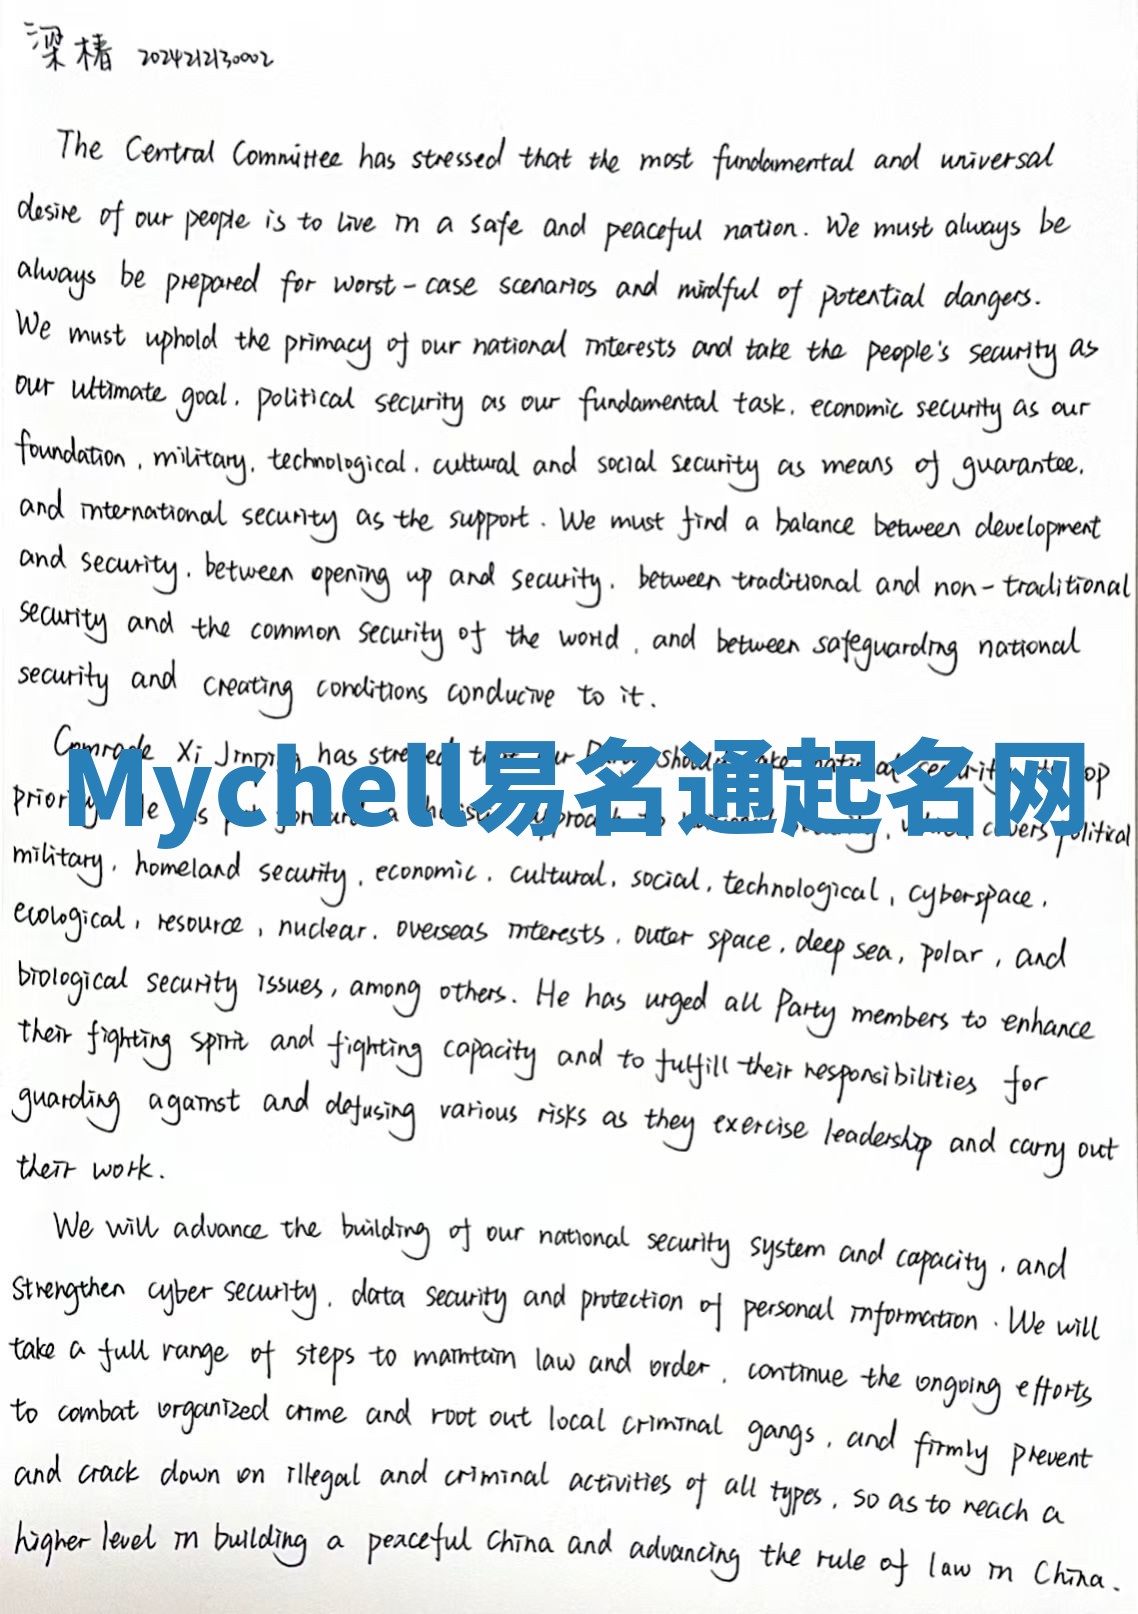 梁椿 2024212130002
The Central Committee has stressed that the most fundamental and universal
desire of our people is to live in a safe and peaceful nation. We must always be
always be prepared for worst-case scenarios and mindful of potential dangers.
We must uphold the primacy of our national interests and take the people's security as
our ultimate goal, political security as our fundamental task, economic security as our
foundation, military, technological, cultural and social security as means of guarantee,
and international security as the support. We must find a balance between development
and security, between opening up and security, between traditional and non-traditional
security and the common security of the world, and between safeguarding national
security and creating conditions conducive to it.
Comrade Xi Jinping has stressed
Mychell易名通起名网
priority covers political
military, homeland security, economic, cultural, social, technological, cyberspace,
ecological, resource, nuclear, overseas interests, outer space, deep sea, polar, and
biological security issues, among others. He has urged all Party members to enhance
their fighting spirit and fighting capacity and to fulfill their responsibilities for
guarding against and defusing various risks as they exercise leadership and carry out
their work.
We will advance the building of our national security system and capacity, and
strengthen cyber security, data security and protection of personal information. We will
take a full range of steps to maintain law and order, continue the ongoing efforts
to combat organized crime and root out local criminal gangs, and firmly prevent
and crack down on illegal and criminal activities of all types, so as to reach a
higher level in building a peaceful China and advancing the rule of law in China.